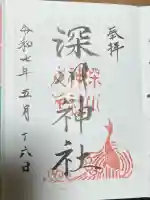 奉拝
深川神社
令和七年五月十六日